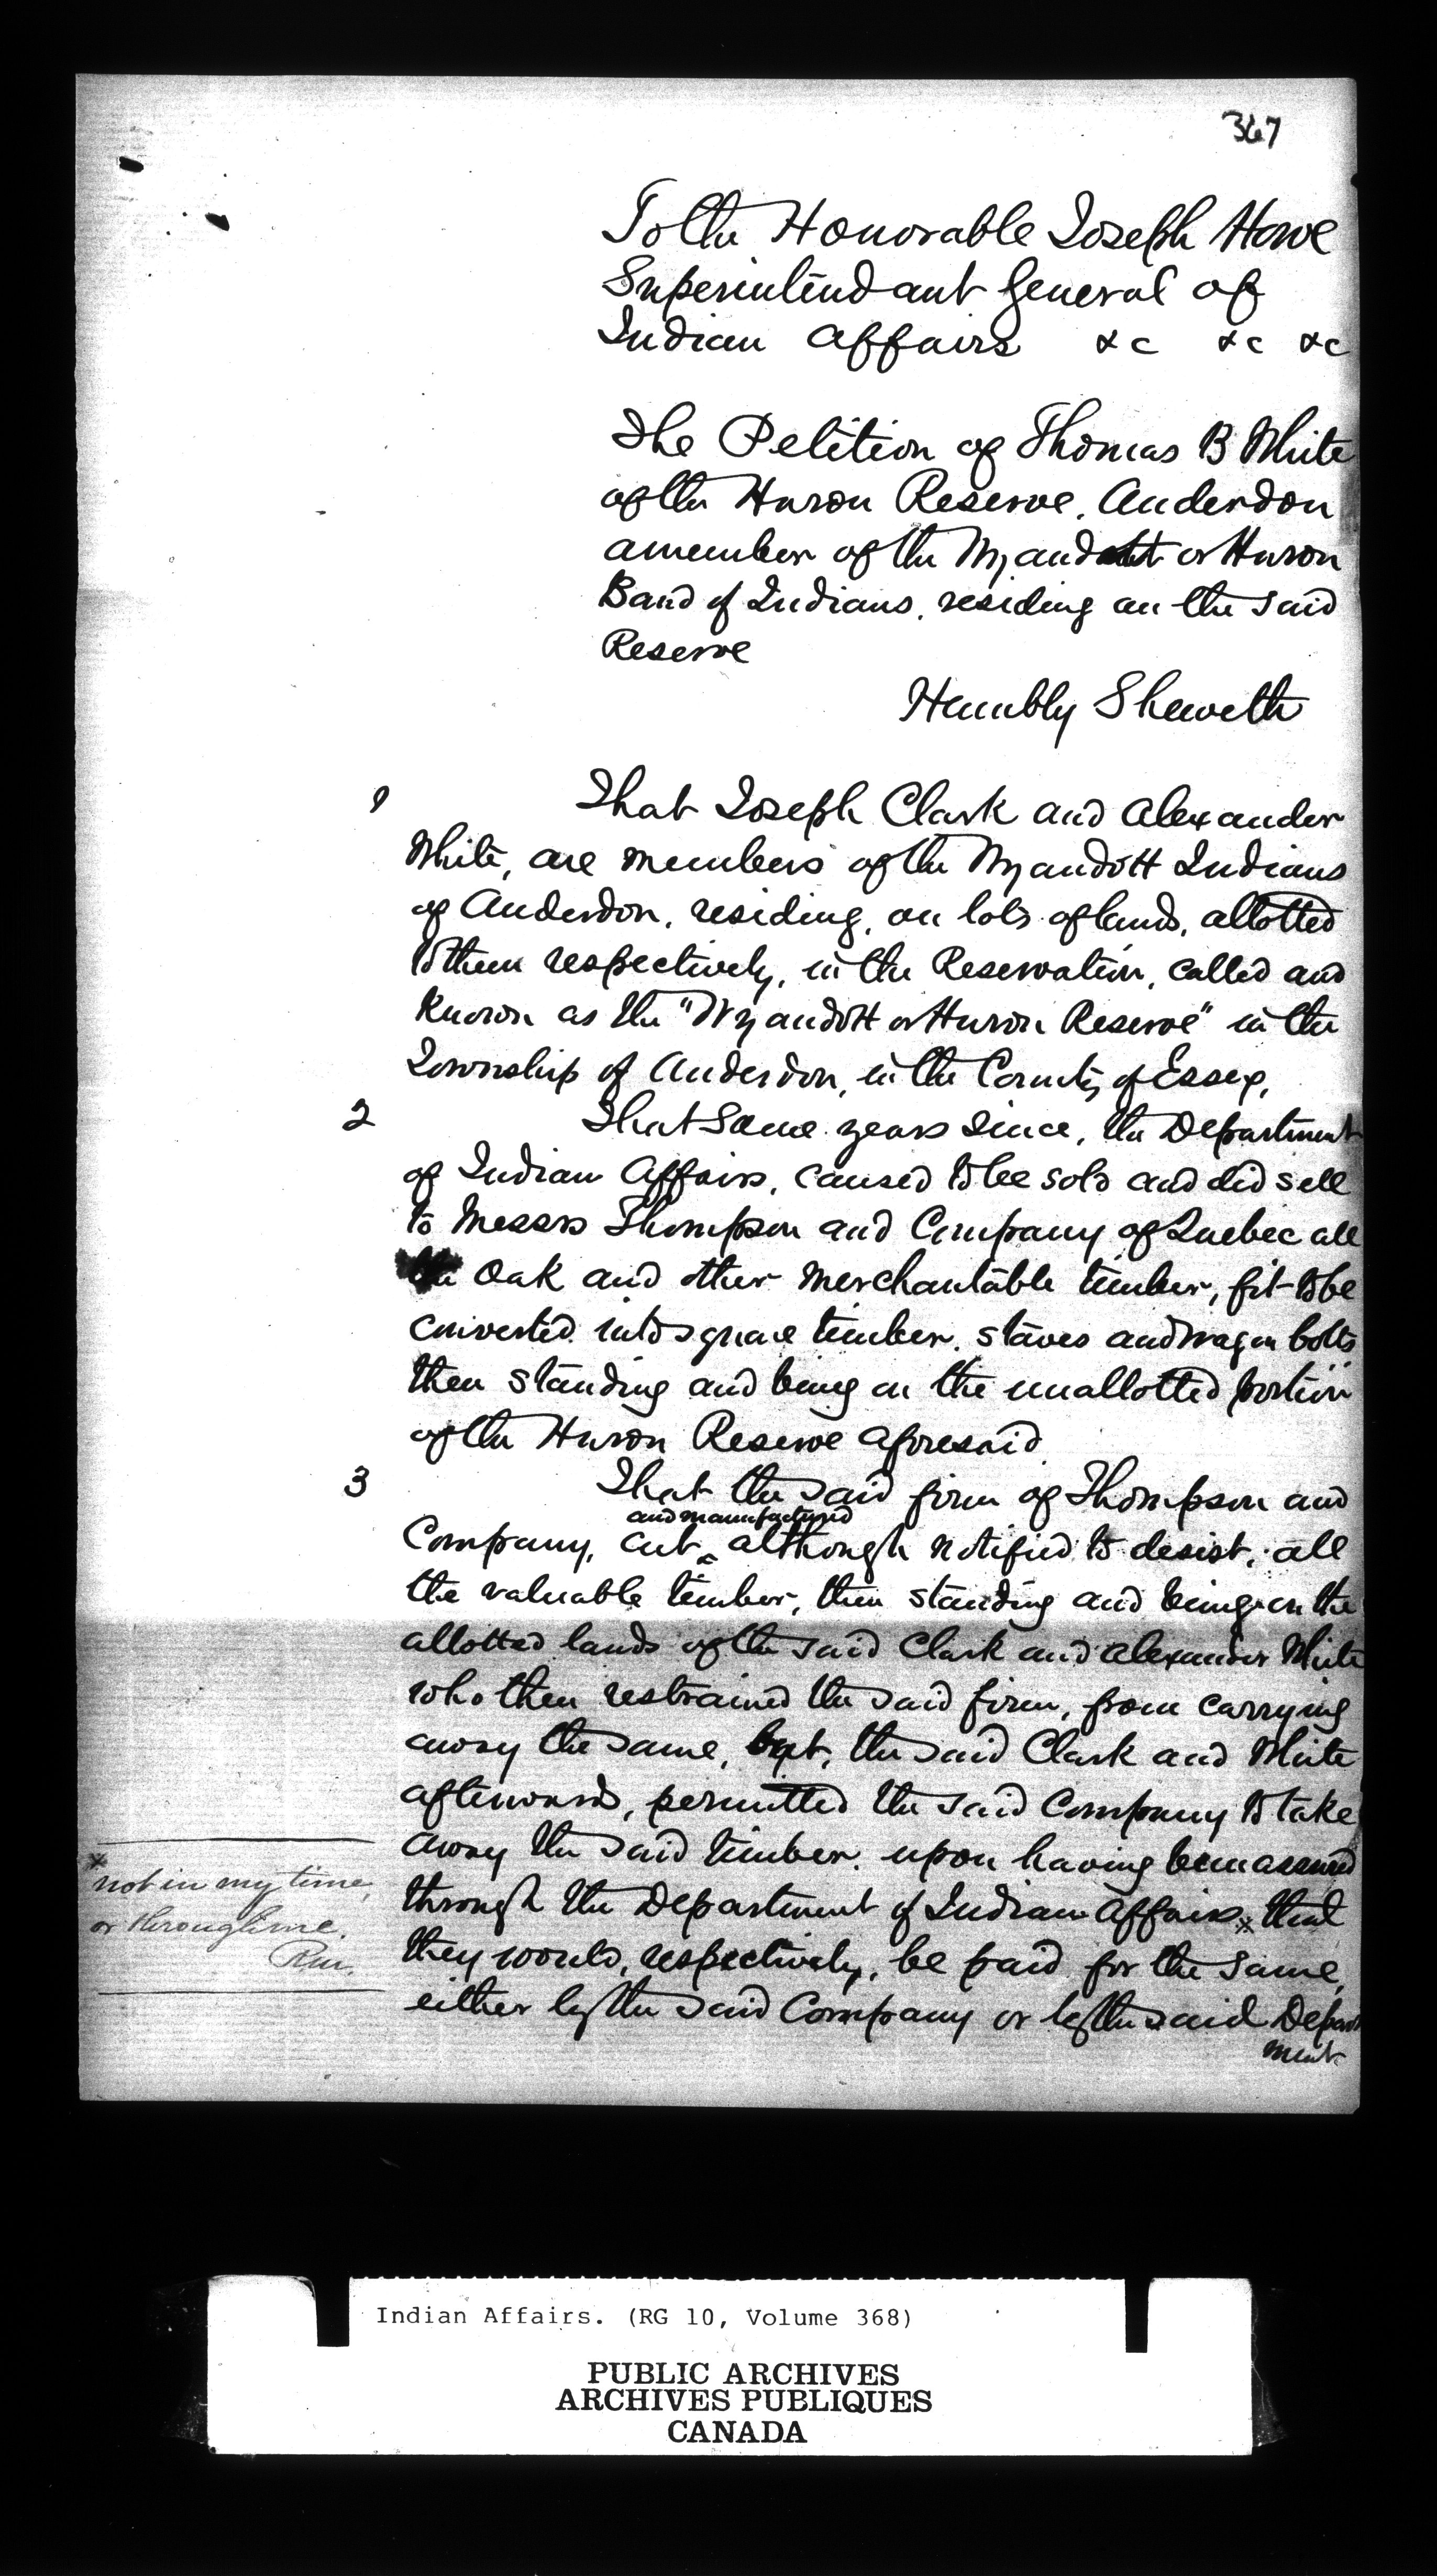 367
To the Honorable Joseph Howe
Superintendant General of
Indian Affairs &c &c &c
The Petition of Thomas B White
of the Huron Reserve. Anderdon
a member of the Wyandott or Huron
Band of Indians, residing on the said
Reserve
Humbly Sheweth
1 That Joseph Clark and Alexander
White, are members of the Wyandott Indians
of Anderdon, residing, on lots of lands, allotted
to them respectively, in the Reservation, called and
known as the "Wyandott or Huron Reserve" in the
Township of Anderdon, in the County of Essex,
2 That some years since, the Department
of Indian Affairs, caused to be sold and did sell
to Messrs Thompson and Company of Quebec all
the Oak and other merchantable timber, fit to be
converted into square timber, staves and wagon bolts
then standing and being on the unallotted portion
of the Huron Reserve aforesaid
3 That the said firm of Thompson and
and manufactured
Company, cut ^ although notified to desist, all
the valuable timber, then standing and being on the
allotted lands of the said Clark and Alexander White
who then restrained the said firm, from carrying
away the same, but, the said Clark and White
afterwards, permitted the said Company to take
away the said timber. upon having been assured
through the Department of Indian Affairs * that
they would, respectively, be paid for the same,
either by the said Company or by the said Depart
ment
*
not in my time,
or through me.
Indian Affairs. (RG 10, Volume 368)
PUBLIC ARCHIVES
ARCHIVES PUBLIQUES
CANADA